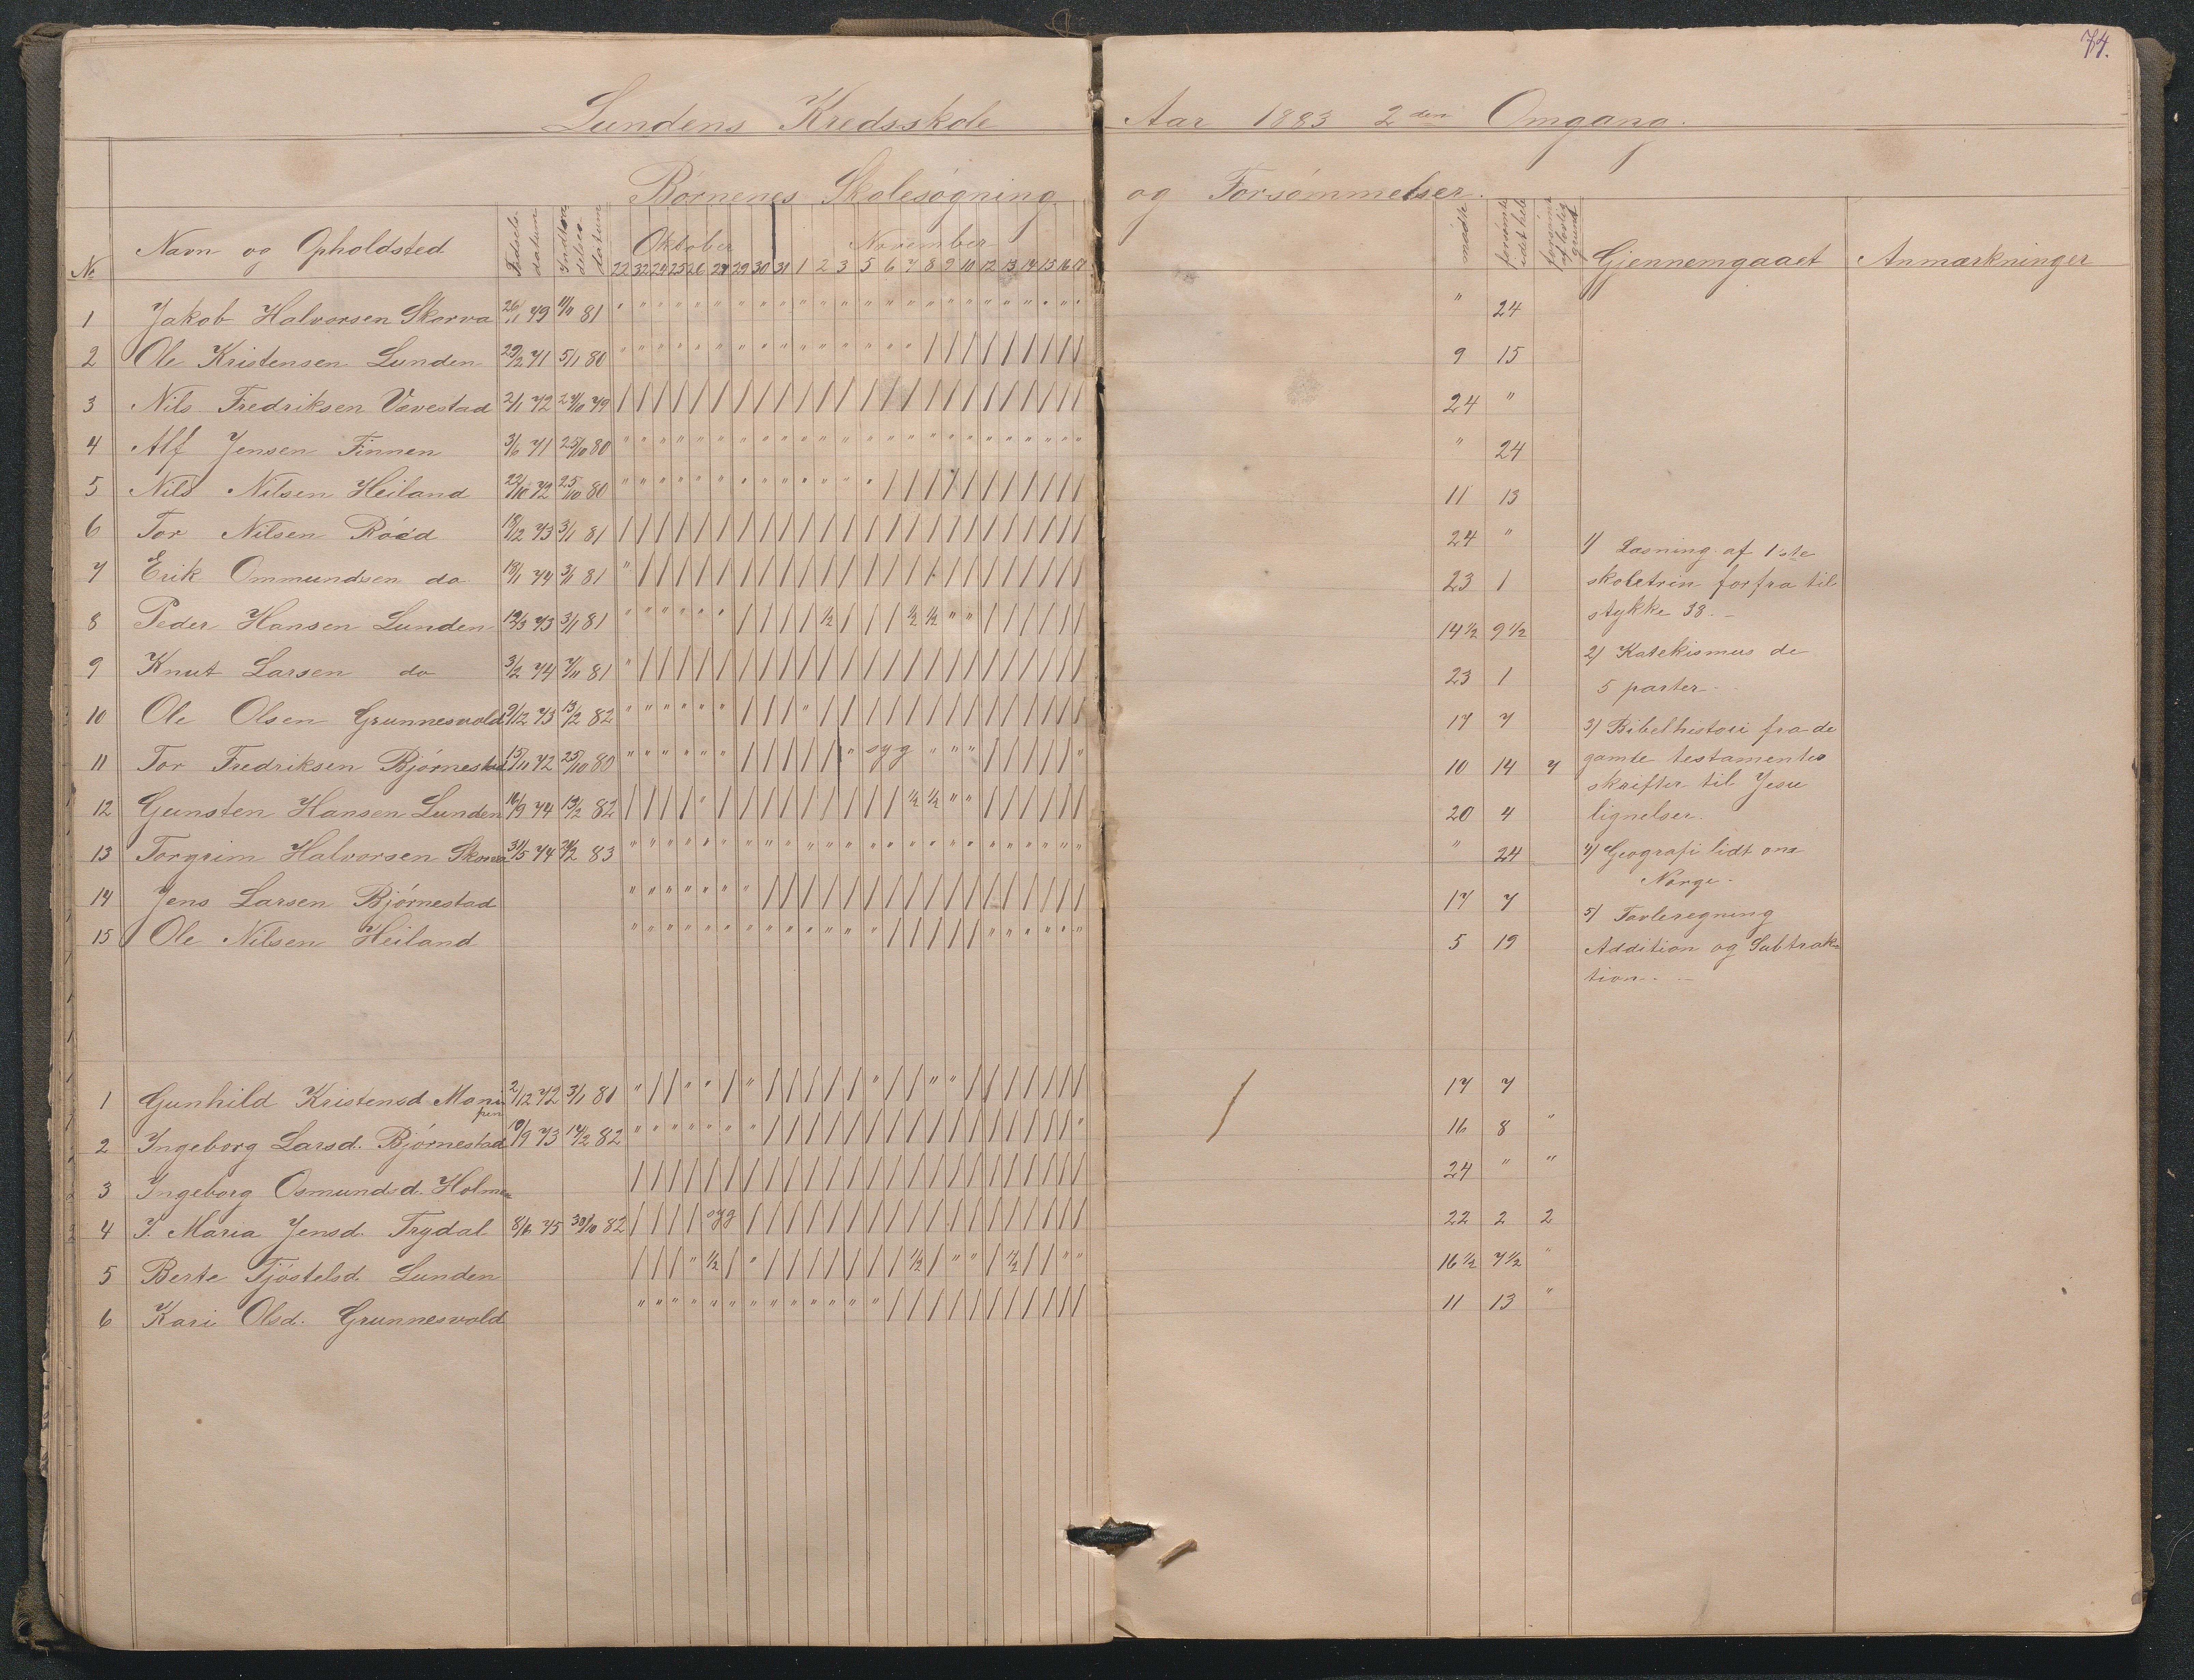 74.
Lundens Kredsskole Aar 1883 2den Omgang.
Børnenes Skolesøgning og Forsømmelser.
No Navn og Opholdsted Fødsels-datum Indtræ-delses-datum Oktober November mødte forsømte idet hele forsømte af lovlig grund Gjennemgaaet Anmærkninger
22 32 24 25 26 27 29 30 31 1 2 3 5 6 7 8 9 10 12 13 14 15 16 17
1 Jakob Halvorsen Skorva 26/1 79 11/11 81 " 24
2 Ole Kristensen Lunden 29/2 71 5/1 80 9 15
3 Nils Fredriksen Vævestad 2/1 72 24/10 79 24 "
4 Alf Jensen Finnen 3/6 71 25/10 80 " 24
5 Nils Nilsen Heiland 22/10 72 25/10 80 11 13
6 Tor Nilsen Røed 18/12 73 3/1 81 24 "
7 Erik Ommundsen do 18/1 74 3/1 81 23 1
8 Peder Hansen Lunden 19/3 73 3/1 81 1/2 1/2 1/2 14 1/2 9 1/2
9 Knut Larsen do 3/2 74 7/11 81 23 1
10 Ole Olsen Grunnesvold 9/12 73 13/2 82 17 7
11 Tor Fredriksen Bjørnestad 15/11 72 25/10 80 syg 10 14 7
12 Gunsten Hansen Lunden 10/9 74 13/2 82 1/2 1/2 20 4
13 Torgrim Halvorsen Skorva 31/5 74 21/2 83 " 24
14 Jens Larsen Bjørnestad 17 7
15 Ole Nilsen Heiland 5 19
1) Læsning af 1ste
skoletrin forfra til
stykke 38.-
2) Katekismus de
5 parter.
3) Bibelhistori fra de
gamle testamentes
skrifter til Jesu
lignelser.
4) Geografi lidt om
Norge.
5) Tavleregning
Addition og Subtrak-
tion.
1 Gunhild Kristensd. 2/12 72 3/1 81 17 7
2 Ingeborg Larsd. Bjørnestad 10/9 73 14/2 82 16 8 "
3 Ingeborg Osmundsd. Holmen 24 " "
4 J. Maria Jensd. Trydal 8/6 75 30/10 82 syg 22 2 2
5 Berte Tjøstelsd. Lunden 1/2 1/2 1/2 16 1/2 7 1/2 "
6 Kari Olsd. Grunnesvold 11 13 "